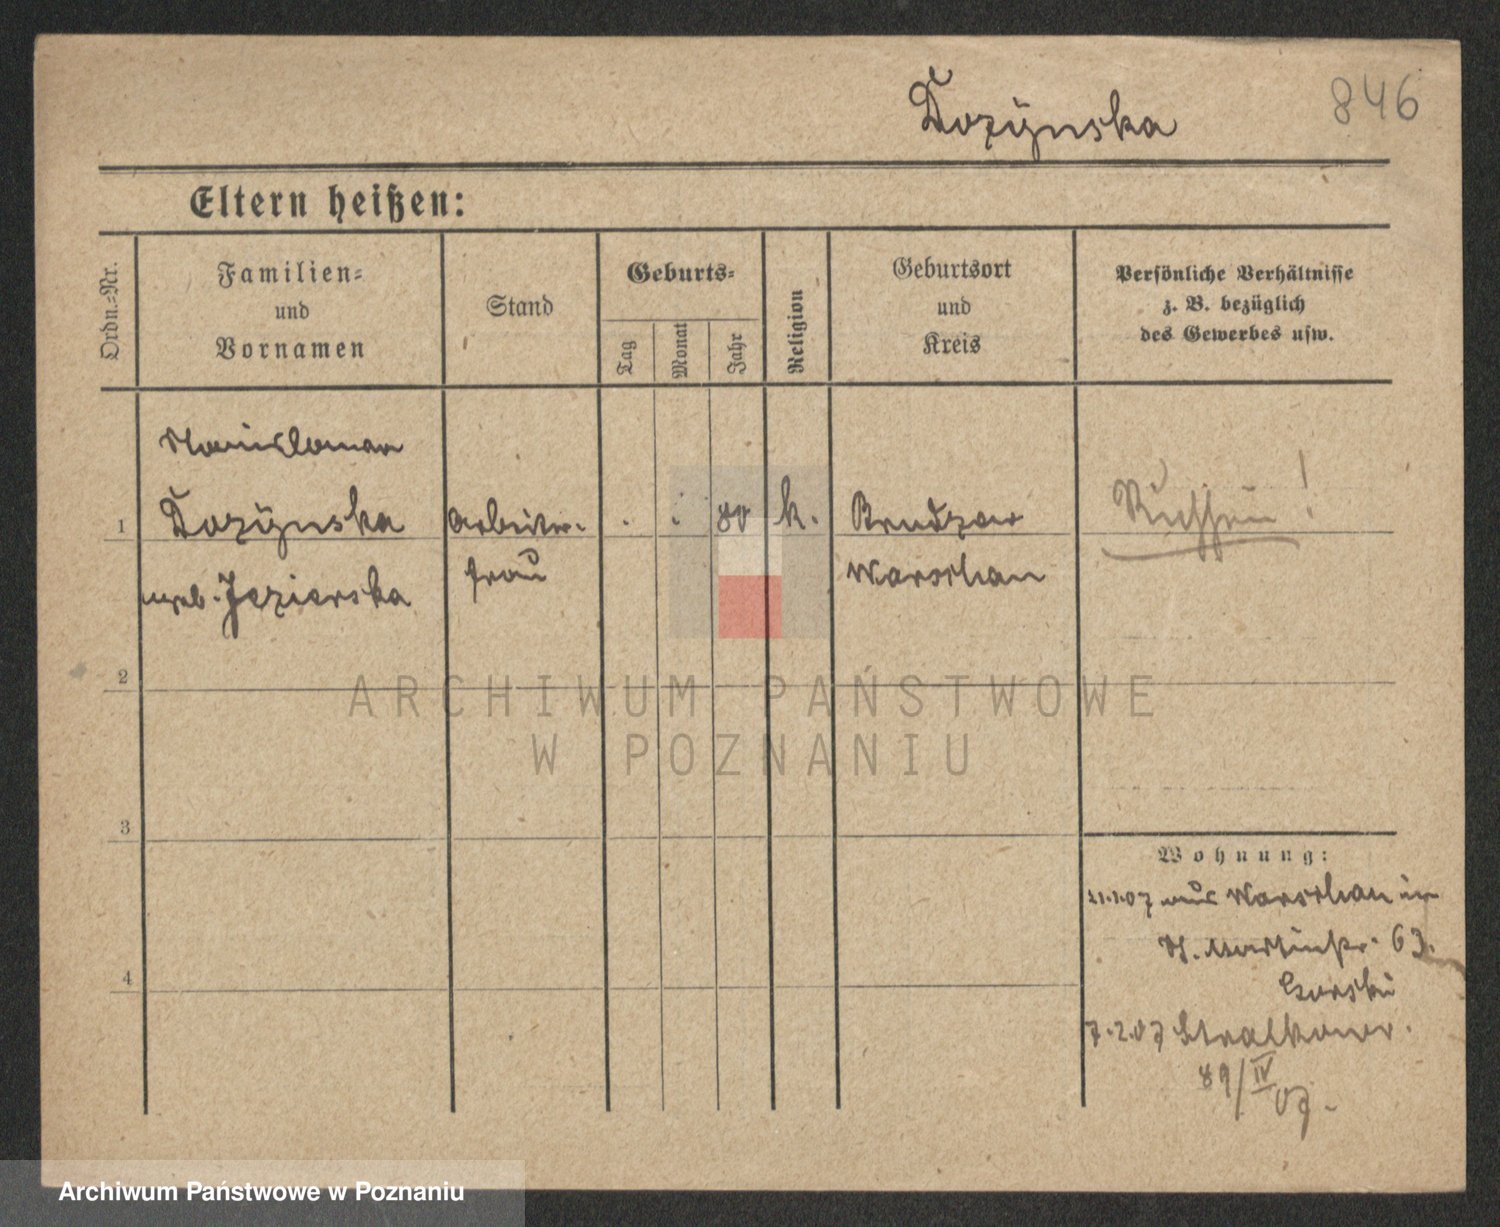 Dozÿnska
846
Eltern heißen:
Ordn.-Nr.
Familien-
und
Vornamen
Stand
Geburts-
Tag
Monat
Jahr
Religion
Geburtsort
und
Kreis
Persönliche Verhältnisse
z. B. bezüglich
des Gewerbes usw.
Stanislawa
1 Dozÿnska Arbeiter- . . 80 k. Brudzow
frau Warschau
geb. Jezierska
2
3
4
Wohnung:
21.1.07 aus Warschau in
St. Martinstr. 63.
Gorski
7.2.07 Stralkowo.
89/IV 07.
ARCHIWUM PAŃSTWOWE
W POZNANIU
Archiwum Państwowe w Poznaniu